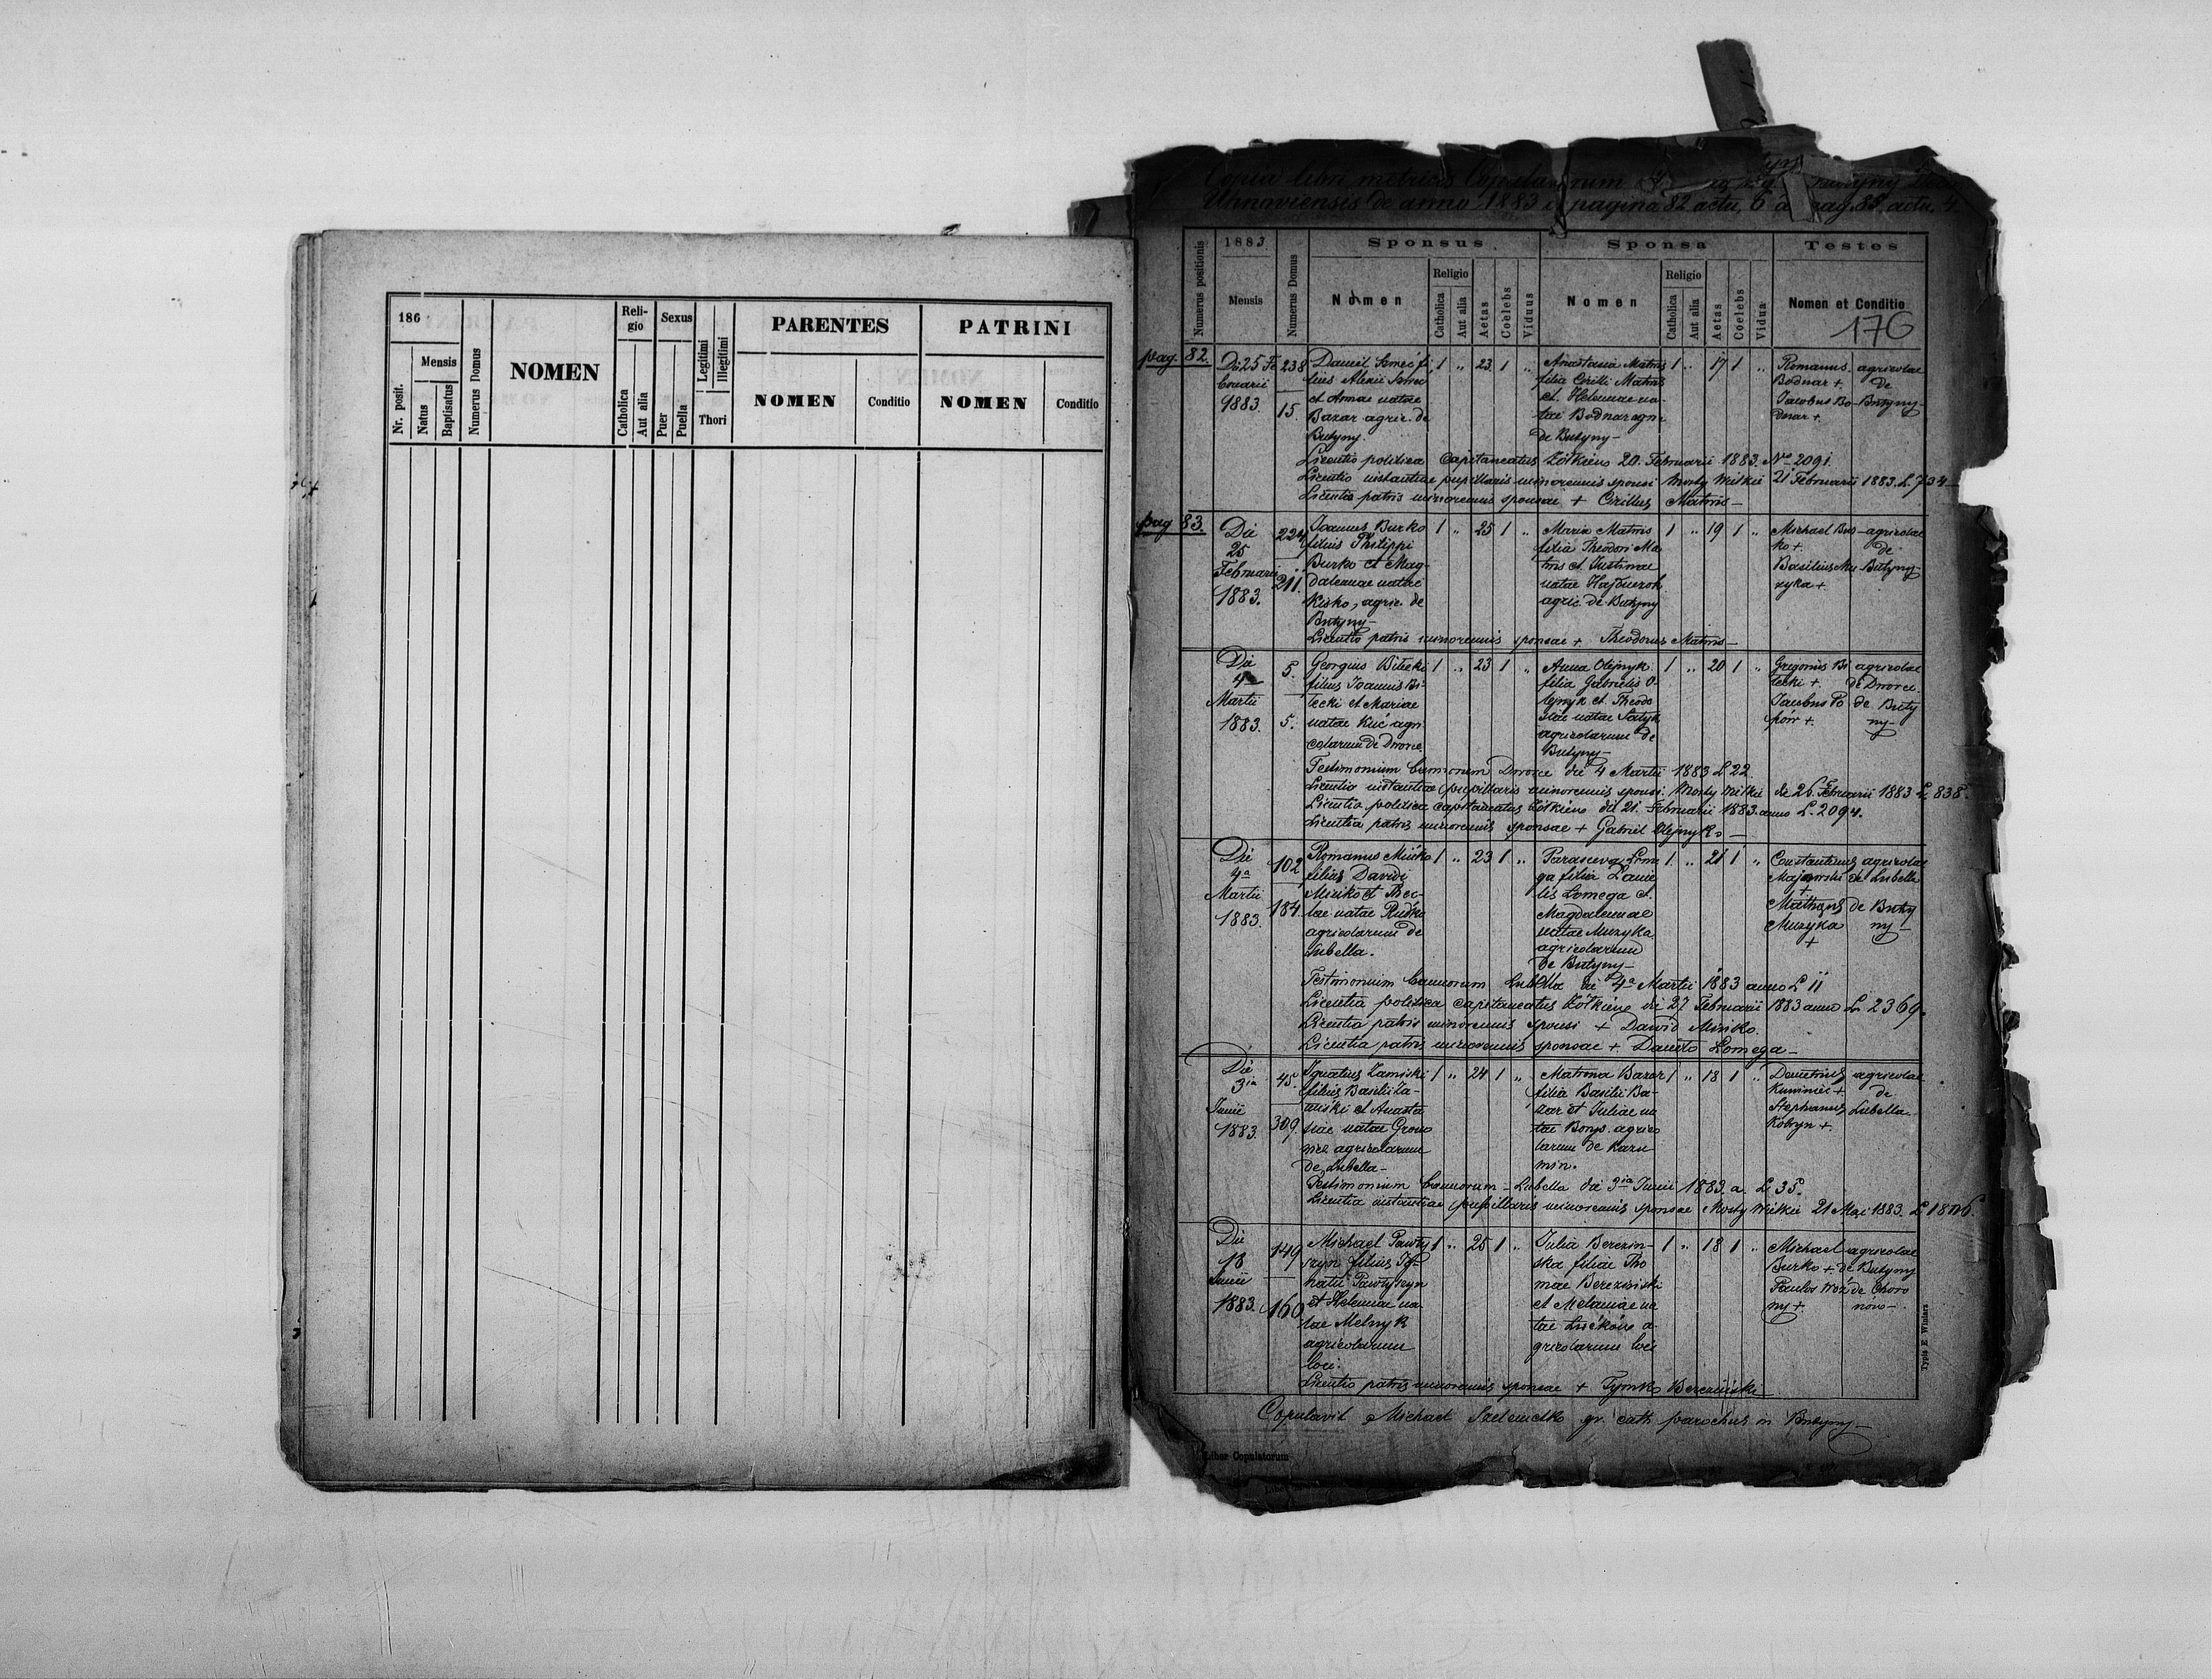 186
Nr. posit.
Mensis
Natus
Baptisatus
Numerus Domus
NOMEN
Reli-
gio
Catholica
Aut alia
Sexus
Puer
Puella
Legitimi
Illegitimi
Thori
PARENTES
NOMEN
Conditio
PATRINI
NOMEN
Conditio
Copia libri metrices Copulatorum
de anno 1883 pagina 82 actu, 6 a pag 83, actu. 4
Numerus positionis
1883.
Mensis
Numerus Domus
Sponsus
Nomen
Religio
Catholica
Aut alia
Aetas
Coelebs
Viduus
Sponsa
Nomen
Religio
Catholica
Aut alia
Aetas
Coelebs
Vidua
Testes
Nomen et Conditio
176
pag. 82.
Di 25 Fe
bruarii
1883.
238
15.
Daniil fi,
lius Alexii
et Annae natae
Bazar agric. de
Butyny.
1 „ 23 1 „
Anastasia Matwis
filia Cirilli Matwis
et Helenae na-
tae Bodnar agr
de Butyny-
1 „ 17 1 „
Romanus
Bodnar +.
Jacobus Bo-
dnar +.
agricolae
de
Butyny-
Licentia politica Capitaneatus Żółkiew 20. Februarii 1883. No 2091.
Licentia instantiae pupillaris minorennis sponsi Mosty Wilkie 21 Februarii 1883. L. 734-
Licentia patris minorennis sponsae + Cirillus Matwis-
pag 83.
Die
25
Februarii
1883.
224
211.
Joannes Burko
filius Philippi
Burko et Mag-
dalenae natae
Kisko, agric. de
Butyny-
1 „ 25 1 „
Maria Matwis
filia Theodori Ma
twis et Justinae
natae
agric. de Butyny
1 „ 19 1 „
Michael Bur
ko +.
Basilius Mu
zyka +
-agricolae
de
Butyny-
Licentia patris minorennis sponsae + Theodorus Matwis-
Die
4a
Martii
1883.
5.
5.
Georgius Bilecki
filius Joannis Bi-
lecki et Mariae
natae Kuć agri
colarum de Dworce.
1 „ 23 1 „
Anna Olejnyk
filia Gabrielis O-
lejnyk et Theodo
siae natae Satyk
agricolarum de
Butyny-
1 „ 20 1 „
Gregorius Bi
lecki +.
Jacobus Po
pów +.
agricolae
de Dworce.
de Buty
ny-
Testimonium bannorum Dworce die 4 Martii 1883 L 22.
Licentia instantiae pupillaris minorennis sponsi. Mosty Wilkie de 26. Februarii 1883 L. 838.
Licentia politica capitaneatus Żółkiew die 21. Februarii 1883. anno L. 2094.
Licentia patris minorennis sponsae + Gabriel Olejnyk. -
Die
4a
Martii
1883.
102
184.
Romanus Misiko
filius Davidi
Misiko et Thec-
lae natae Rudko
agricolarum de
Lubella.
1 „ 23 1 „
Parasceva Lome
ga filia Danie
lis Lomega et
Magdalenae
natae Muzyka
agricolarum
de Butyny-
1 „ 21 1 „
Constantinus
Majowski
+
Mathaeus
Muzyka
+
agricolae
de Lubella
de Buty
ny-
Testimonium bannorum Lubella die 4a Martii 1883 anno L 11
Licentia politica Capitaneatus Żółkiew die 27 Februarii 1883 anno L. 2369.
Licentia patris minorennis sponsi + Dawid Misiko.
Licentia patris minorennis sponsae + Daniło Lomega-
Die
3ia
Junii
1883.
45.
309.
Ignatius Zamiski
filius Basilii Za-
miski et Anasta
siae natae
agricolarum
de Lubella-
1 „ 24 1 „
Matrona Bazar
filia Basilii Ba-
zar et Juliae na
tae Borys agrico
larum de Kazu
min.
1 „ 18 1 „
Demetrius
+
Stephanus
Kobryn +.
agricolae
de
Lubella-
Testimonium bannorum - Lubella die 3ia Junii 1883. a. L 35.
Licentia instantiae pupillaris minorennis sponsae Mosty Wielkie 21 Maji 1883.
Die
18
Junii
1883.
149
160
Michael Pawły
szyn filius Ig-
natii Pawłyszyn
et Helenae na
tae Melnyk
agricolarum
loci.
1 „ 25 1 „
Julia Berezin-
ska filiae Tho
mae Berezinski
et Melaniae na
tae a-
gricolarum loci
1 „ 18 1 „
Michael
Burko +
Paulus Woź
ny +.
agricolae
de Butyny
de Choro
nów-
Licentia patris minorennis sponsae + Tymko Berezinski
Copulavit Michael gr. cath. parochus in Butyny-
Liber Copulatorum
Typis E Winiarz